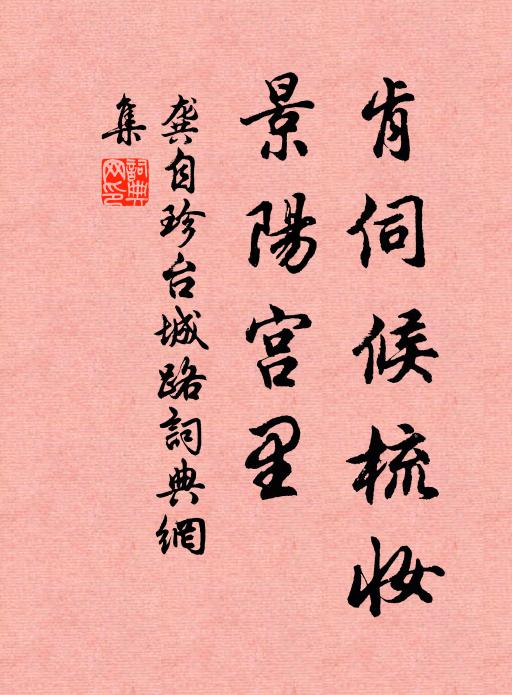 肯伺候梳妆
景陽宫里
龚自珍台城路詞典網
集
詞典網印